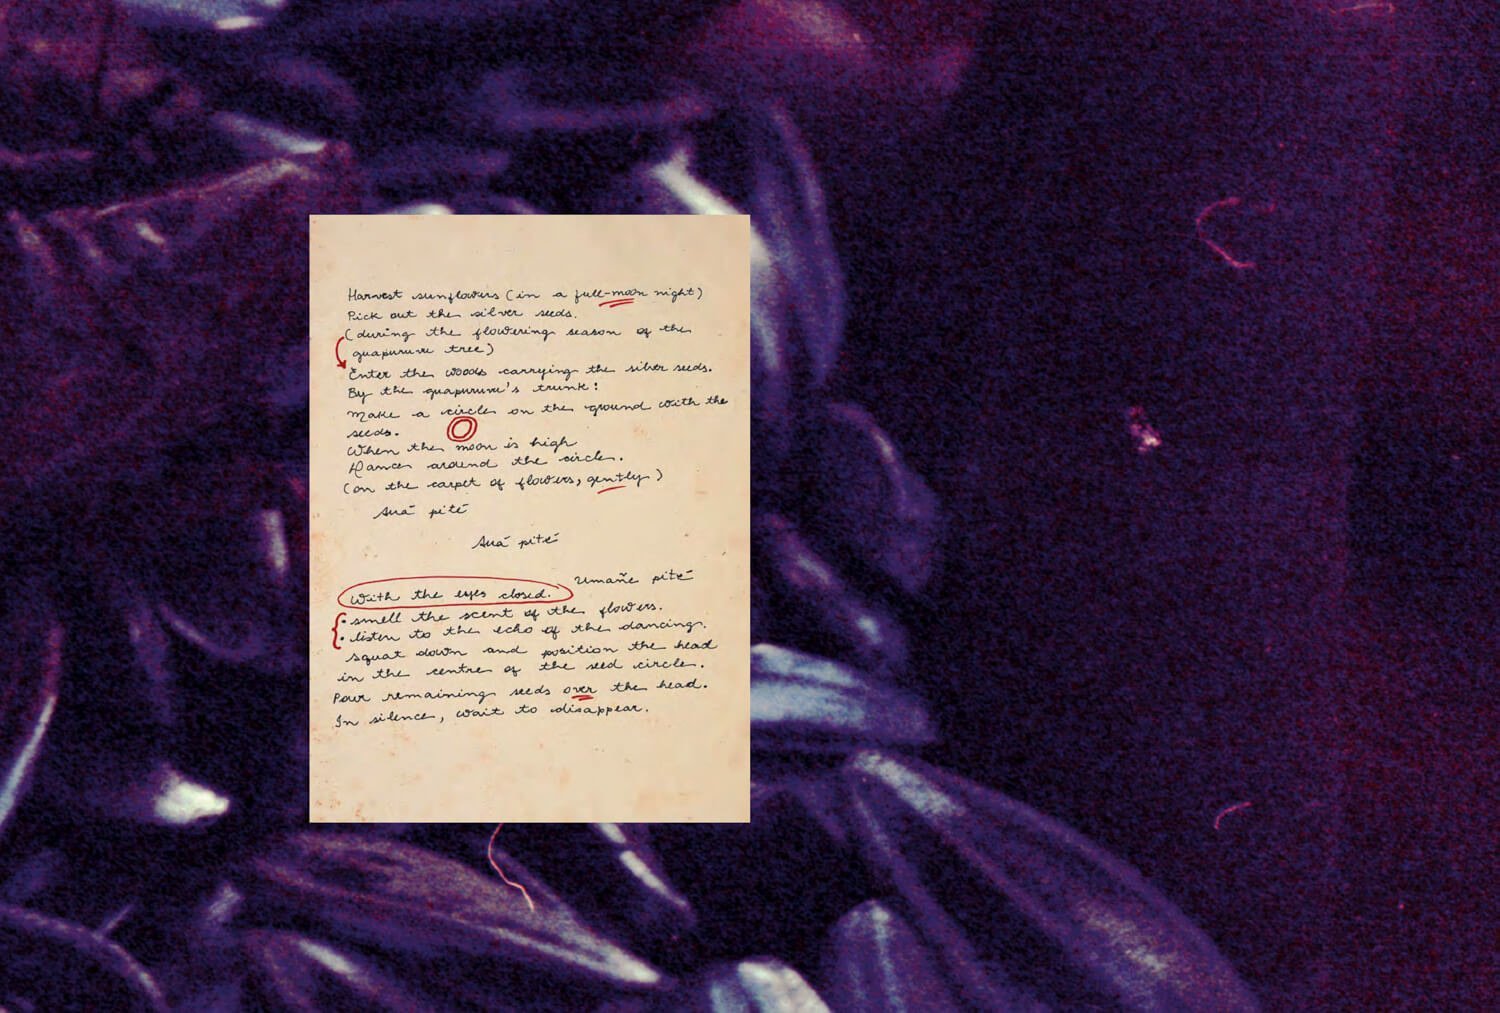 Harvest sunflowers (in a full-moon night)
Pick out the silver seeds.
(during the flowering season of the
guapuruvu tree)
Enter the woods carrying the silver seeds.
By the guapuruvu's trunk:
Make a circle on the ground with the
seeds.
When the moon is high
Dance around the circle.
(on the carpet of flowers, gently)
Auá pité
Auá pité
Umañe pité
With the eyes closed.
• smell the scent of the flowers.
• listen to the echo of the dancing.
Squat down and position the head
in the centre of the seed circle.
Pour remaining seeds over the head.
In silence, wait to disappear.